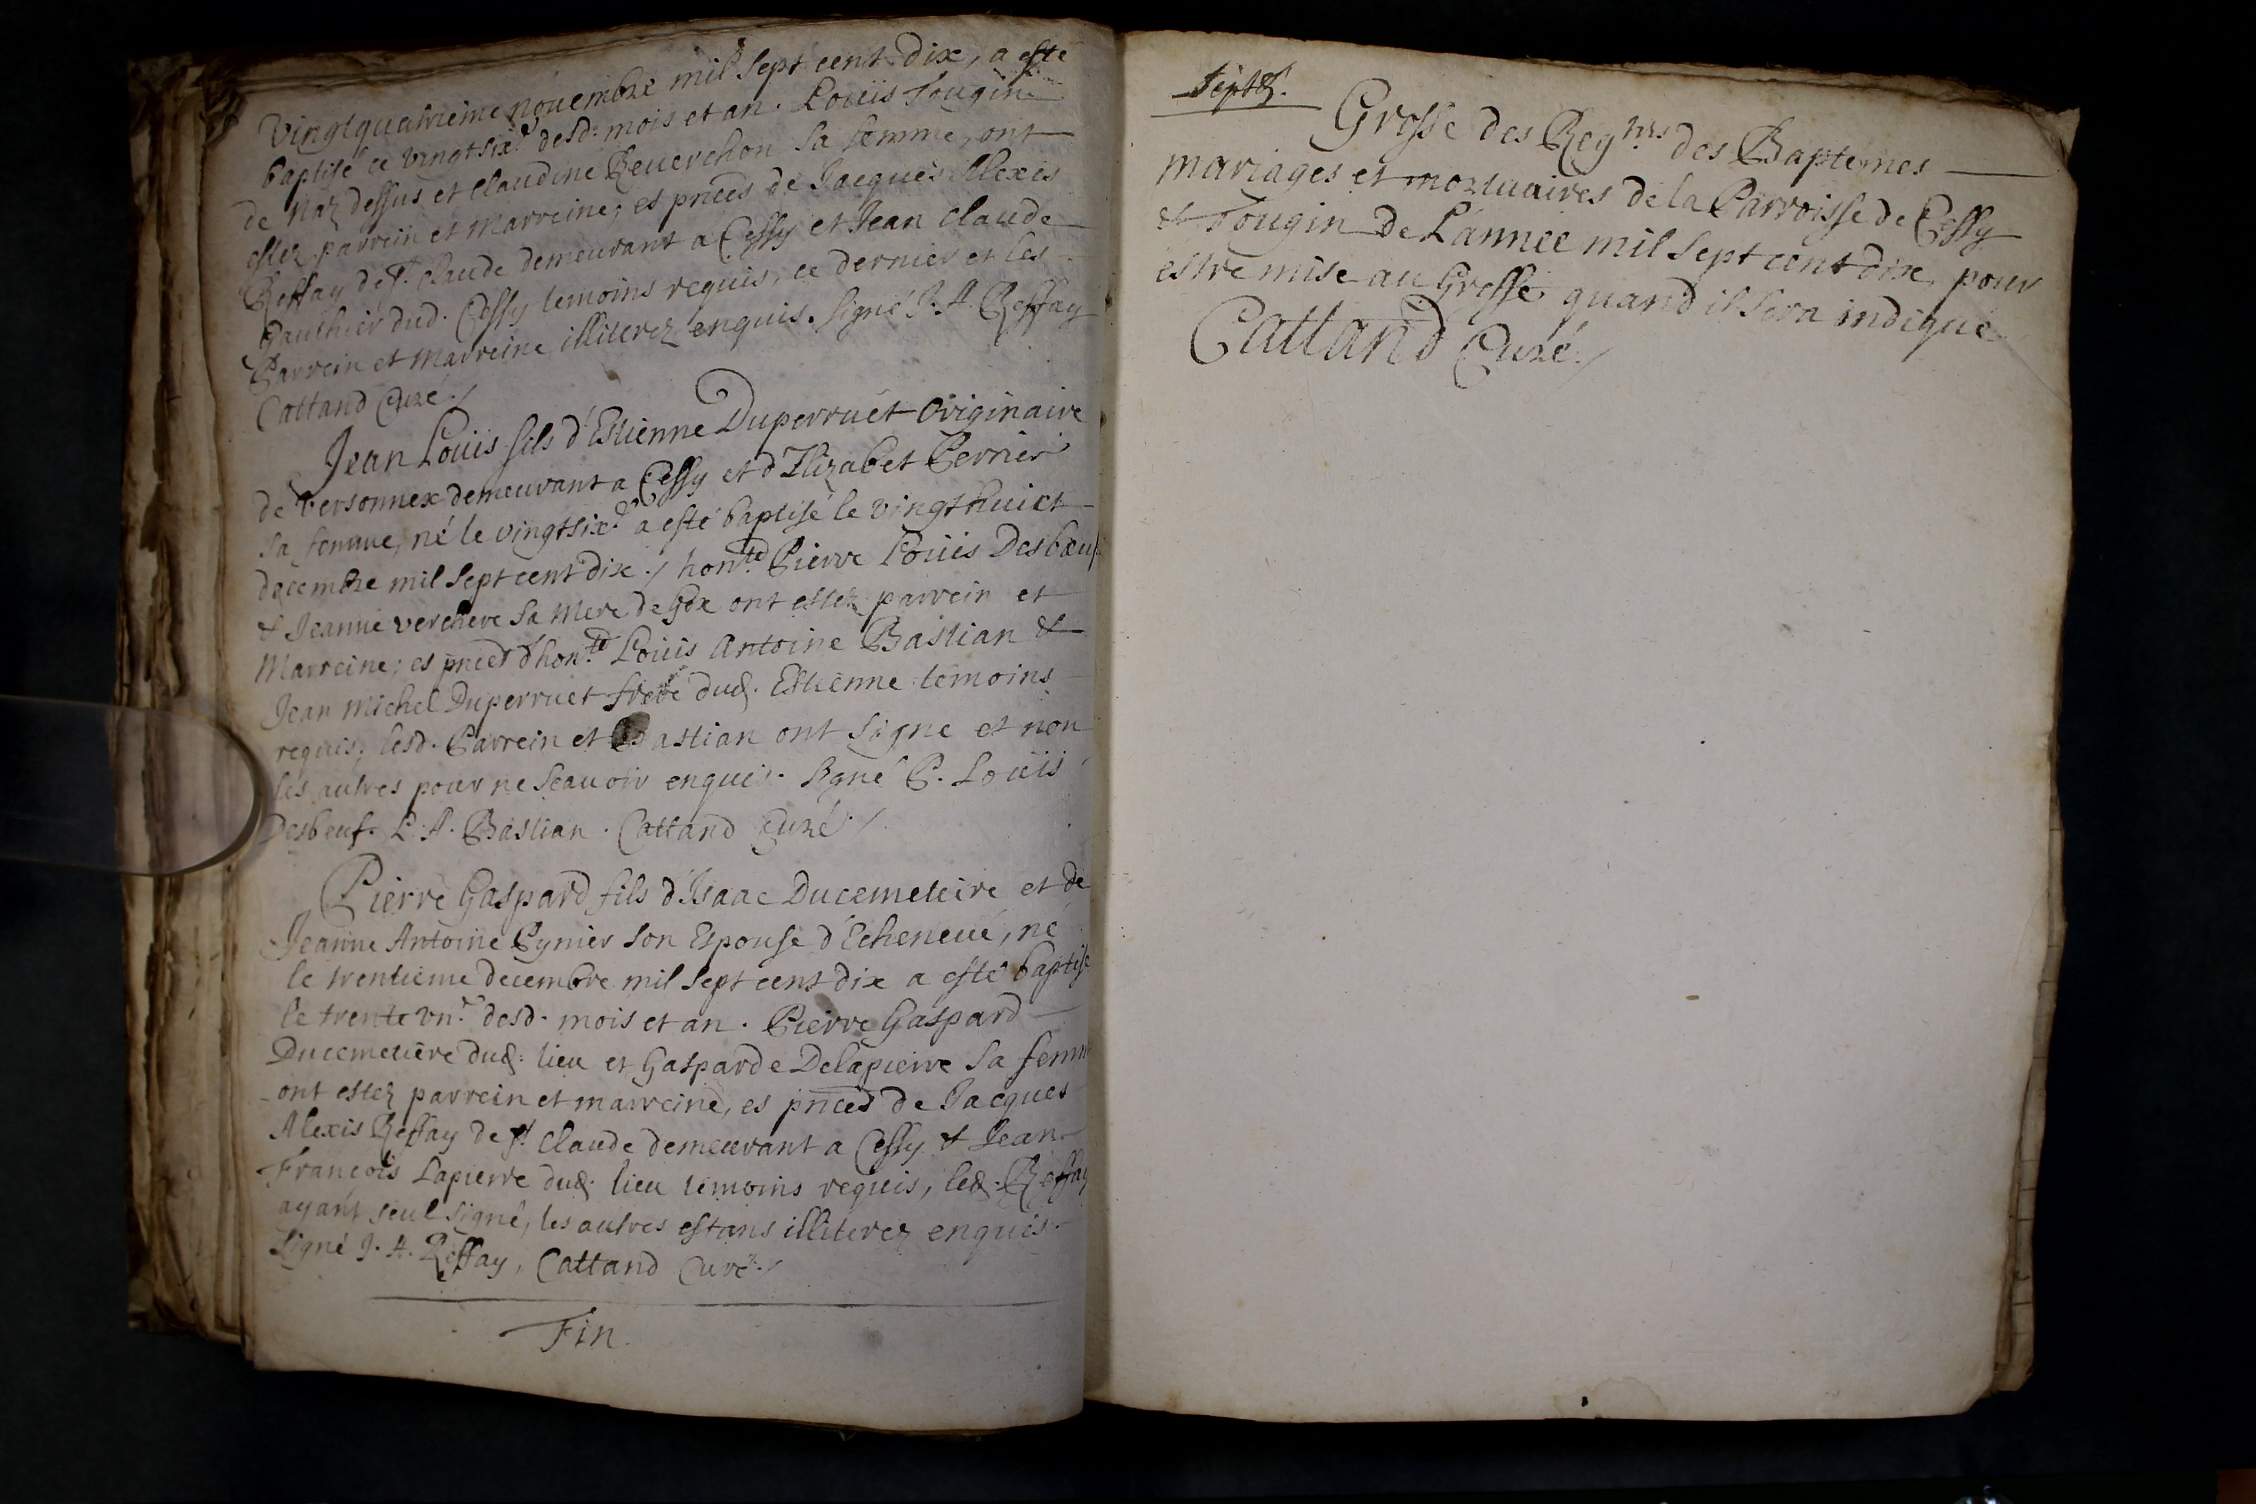 vingtquatrieme novembre mil sept cent dix, a esté
baptisé ce vingtsix.e desd. mois et an. Loüis Tougin
de Naz dessus et Claudine Reuerchon sa femme, ont
estez parrein et Marreine, es pnces de Jacques Alexis
Reffay de St. Claude demeurant a Cessy et Jean Claude
Gauthier dud. Cessy temoins requis, ce dernier et les
Parrein et Marreine illiterez enquis. Signé J. A. Reffay
Cattand Curé./
Jean Loüis fils d'Estienne Duperruet Originaire
de Versonnex demeurant a Cessy et d'Elizabet Perrier
sa femme, né le vingtsix.e a esté baptisé le vingthuict
decembre mil sept cent dix./ hon.te Pierre Loüis Desbœuf
& Jeanne verchere sa Mere de Gex ont estez parrein et
Marreine; es pnces d'hon.te Loüis Antoine Bastian &
Jean Michel Duperruet frere dud. Estienne temoins
requis; lesd. Parrein et Bastian ont signe et non
les autres pour ne scauoir enquis. signé P. Loüis
Desbeuf. L. A. Bastian. Cattand Curé./
Pierre Gaspard fils d'Isaac Ducemeteire et de
Jeanne Antoine Pynier son Espouse d'Echeneué, né
le trentieme decembre mil sept cent dix a esté baptisé
le trente vn.e desd. mois et an. Pierre Gaspard
Ducemetiere dud. lieu et Gasparde Delapierre sa femm
ont estez parrein et marreine, es pnces de Jacques
Alexis Reffay de St Claude demeurant a Cessy & Jean
François Lapierre dud. lieu temoins requis, led. Reffay
ayant seul signé, les autres estans illiterez enquis.
Signé J. A. Reffay, Cattand Curé./
Fin
Grosse des Reg.tres des Baptemes
mariages et mortuaires de la Parroisse de Cessy
& Tougin de L'année mil sept cent dix, pour
estre mise au Greffe quand il sera indiqué
Cattand Curé./